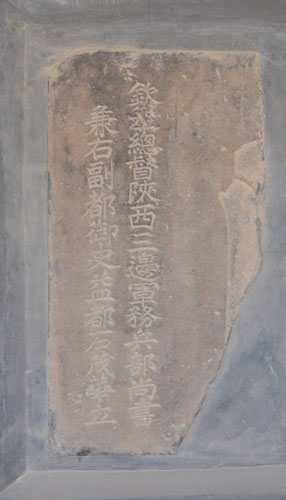 欽差總督陝西三邊軍務兵部尚書
兼右副都御史益都石茂華立